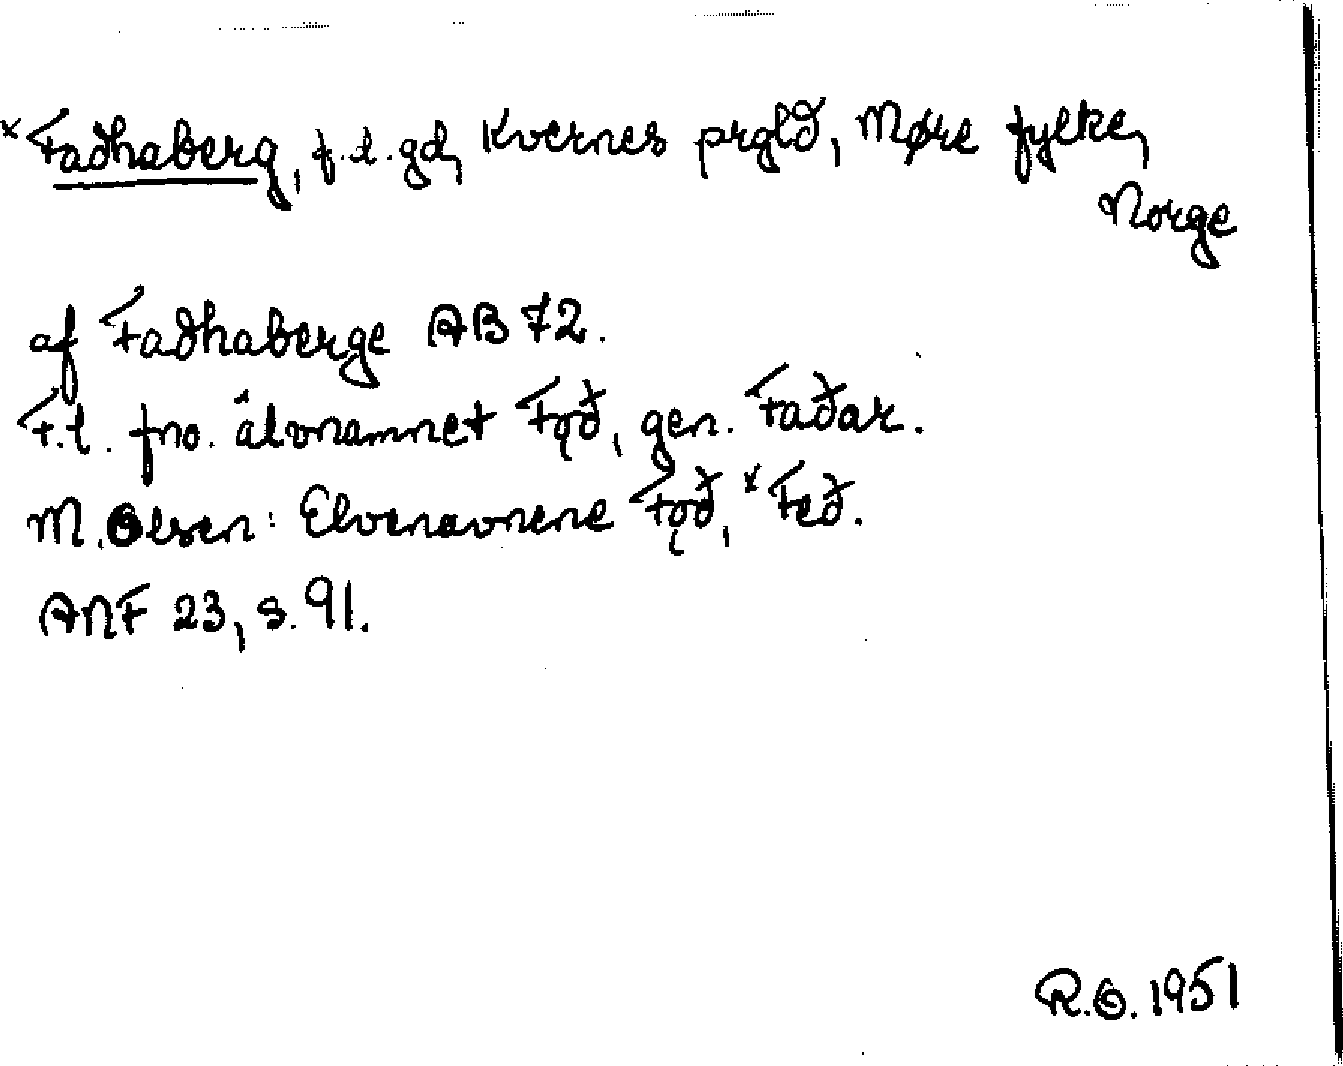 *Faðhaberg, f.d. gd, Kvernes prgld, Møre fylke,
Norge
af Faðhaberge AB 72.
F.l. fno. älvnamnet Fǫð, gen. Faðar.
M. Olsen: Elvenavnene Fǫð, *Feð.
ANF 23, s. 91.
R.O. 1951